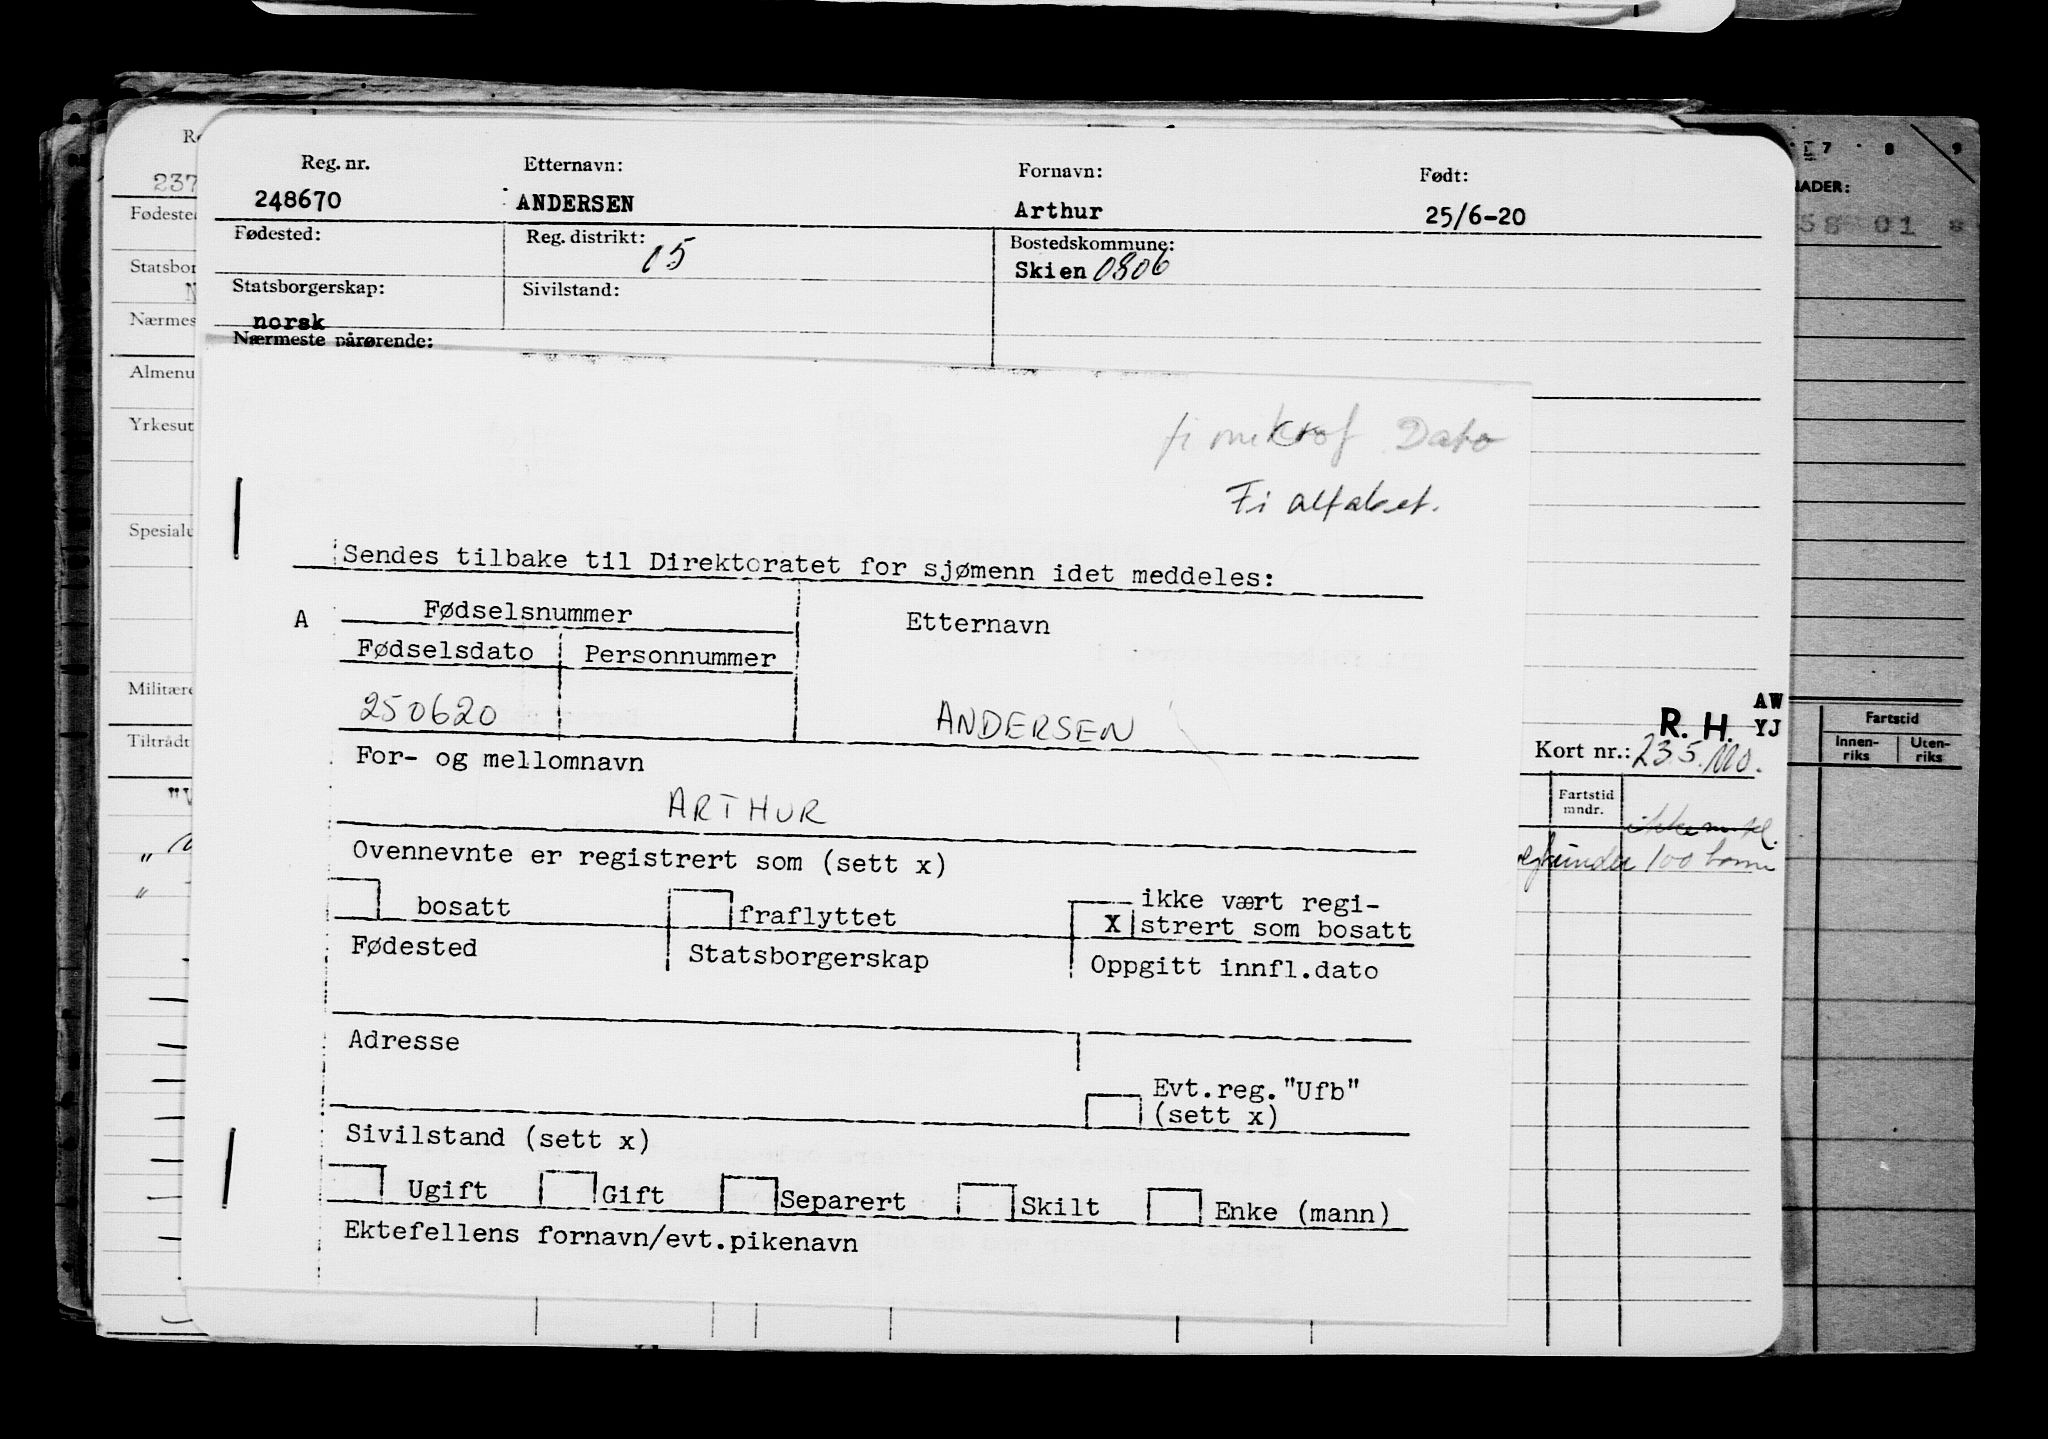 Reg. nr. Etternavn: Fornavn: Født:
248670 ANDERSEN Arthur 25/6-20
Fødested: Reg. distrikt: 15 Bostedskommune:
Skien 0806
Statsborgerskap: Sivilstand:
norsk
Nærmeste pårørende:
237
Statsbor
Nærmes
Almenu
Yrkesut
Spesialu
Militære
Tiltrådt
7 8 9
NADER:
58 01
Dato
Fi alfabet.
Sendes tilbake til Direktoratet for sjømenn idet meddeles:
A Fødselsnummer Etternavn
Fødselsdato Personnummer
250620 ANDERSEN
For- og mellomnavn
ARTHUR
Ovennevnte er registrert som (sett x)
bosatt fraflyttet X ikke vært regi-
strert som bosatt
Fødested Statsborgerskap Oppgitt innfl.dato
Adresse
Evt.reg."Ufb"
(sett x)
Sivilstand (sett x)
Ugift Gift Separert Skilt Enke (mann)
Ektefellens fornavn/evt.pikenavn
AW
R. H. YJ
Kort nr.: 235.
Fartstid
mndr.
under 100
Fartstid
Innen-
riks
Uten-
riks